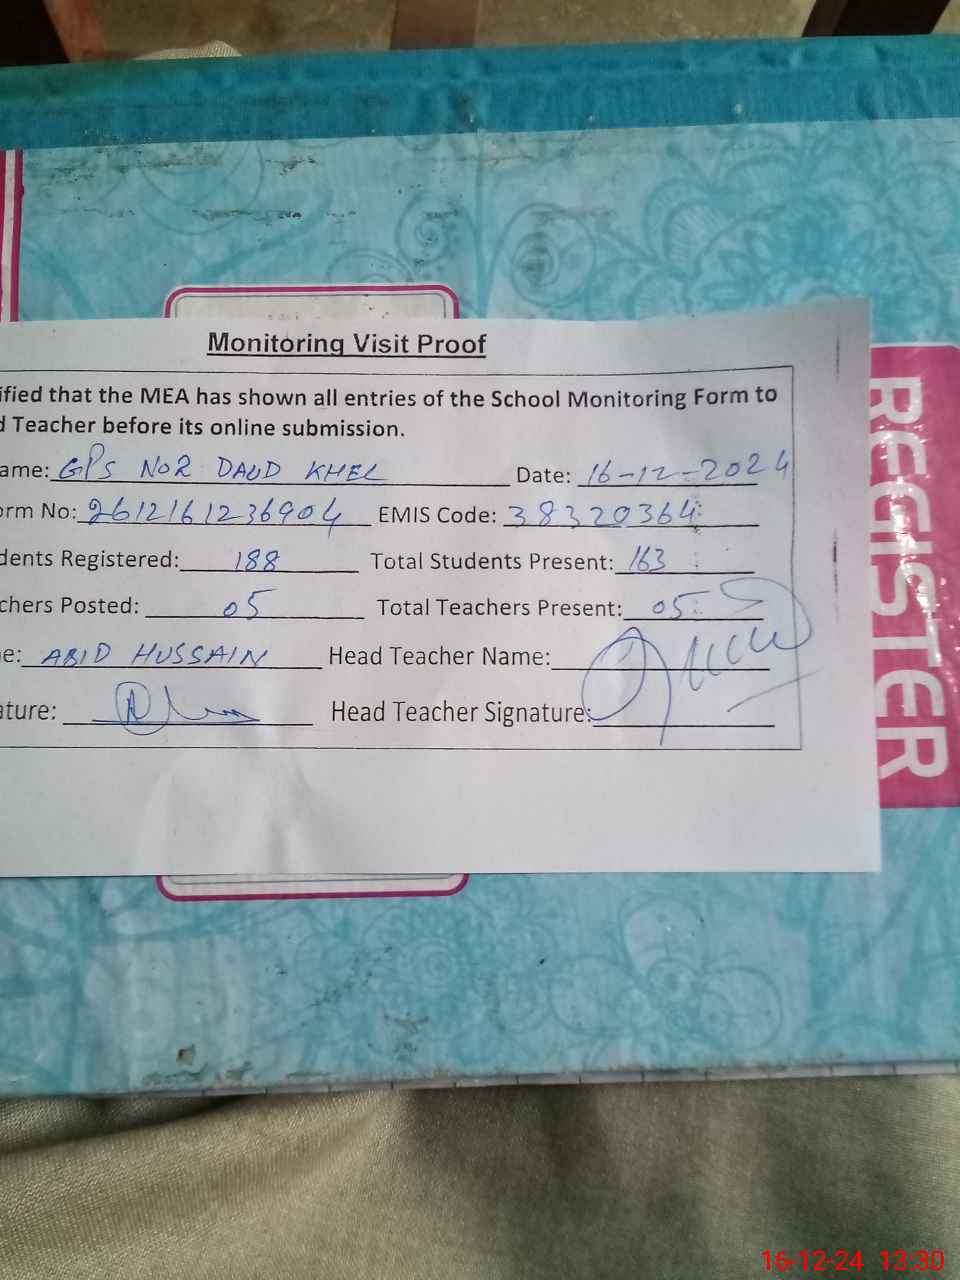 Monitoring Visit Proof
ified that the MEA has shown all entries of the School Monitoring Form to
d Teacher before its online submission.
ame: GPS NO2 DAUD KHEL Date: 16-12-2024
orm No: 2612161236904 EMIS Code: 38320364
dents Registered: 188 Total Students Present: 163
chers Posted: 05 Total Teachers Present: 05
e: ABID HUSSAIN Head Teacher Name:
ature: Head Teacher Signature:
REGISTER
16-12-24 13:30